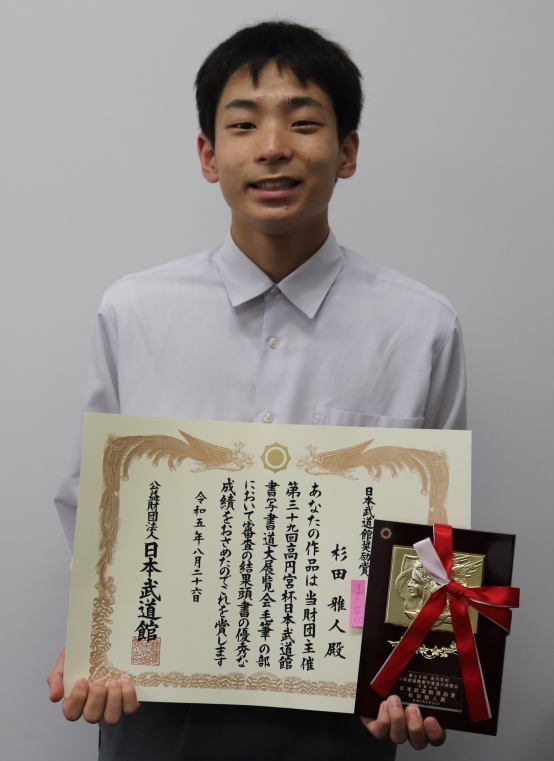 日本武道館奨励賞
杉田 雅人 殿
あなたの作品は当財団主催
第三十九回高円宮杯日本武道館
書写書道大展覧会毛筆の部
において審査の結果頭書の優秀な
成績をおさめたのでこれを賞します
令和五年八月二十六日
公益財団法人 日本武道館
日本武道館奨励賞
杉田雅人殿